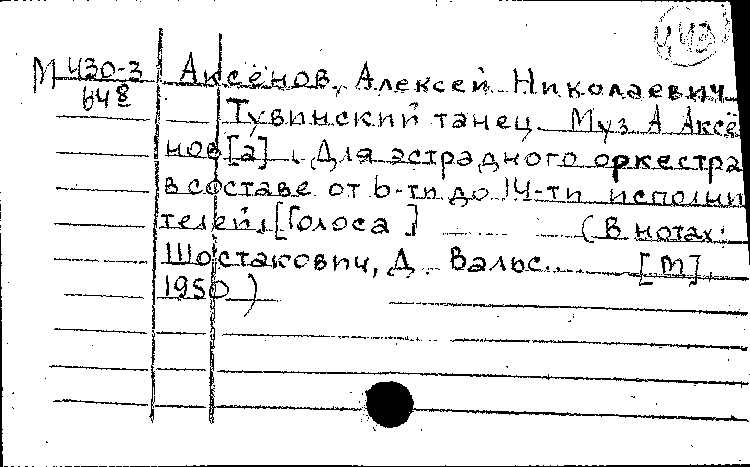 М 430-3
648
Аксёнов, Алексей Николаевич
Тувинский танец. Муз А Аксё
нов[а]. Для эстрадного оркестра
в составе от 6-ти до 14-ти исполни
телей. [Голоса] (В нотах:
Шостакович, Д. Вальс... [М],
1950)